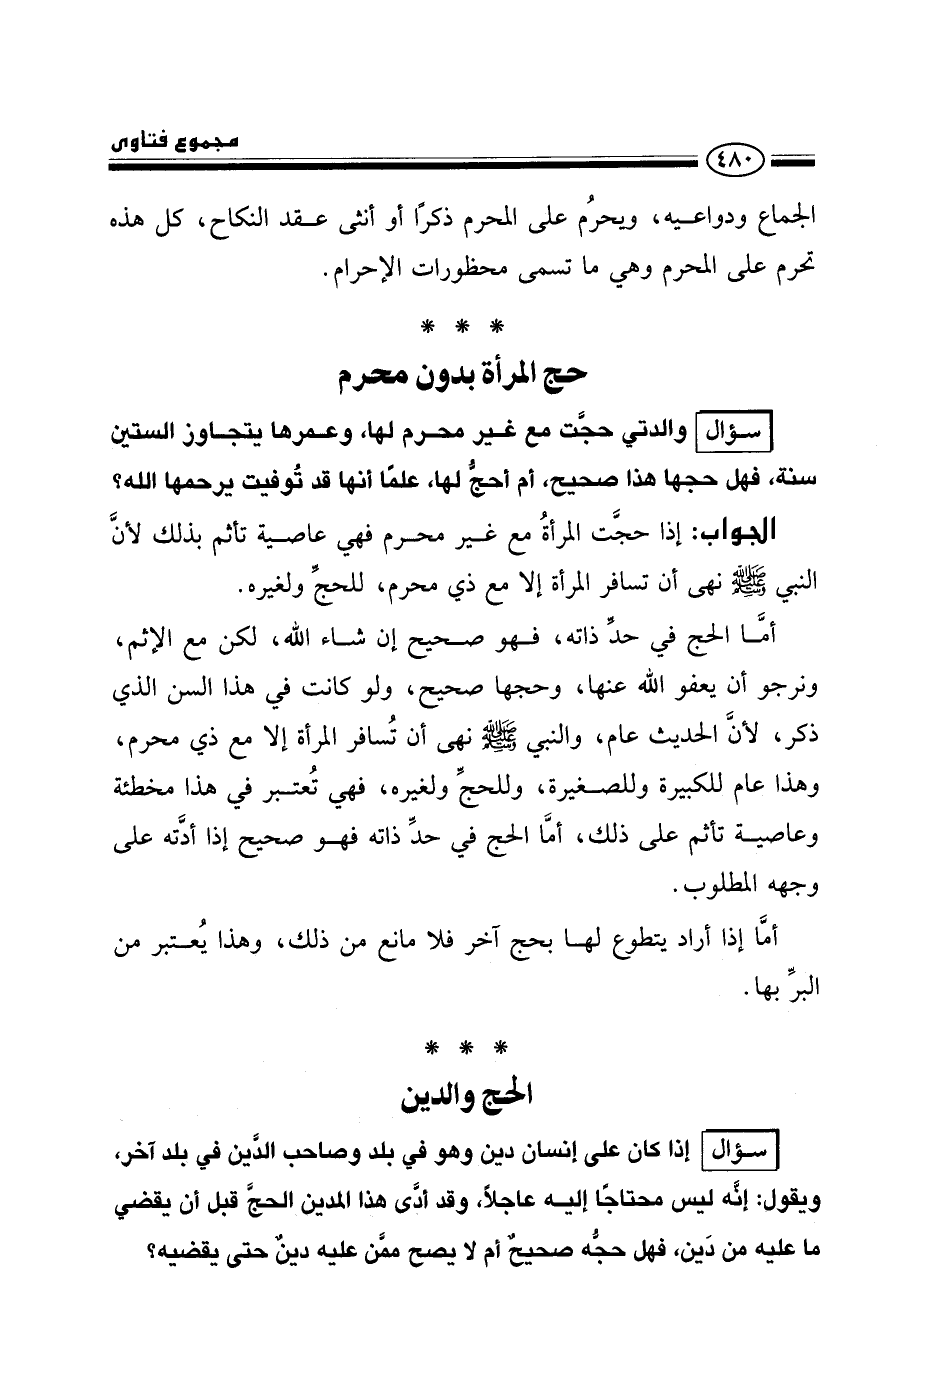 مجموع فتاوى
٤٨٠
الجماع ودواعيه، ويحرُم على المحرم ذكرًا أو أنثى عقد النكاح، كل هذه
تحرم على المحرم وهي ما تسمى محظورات الإحرام.
* * *
حج المرأة بدون محرم
سؤال والدتي حجَّت مع غير محرم لها، وعمرها يتجاوز الستين
سنة، فهل حجها هذا صحيح، أم أحجُّ لها، علمًا أنها قد تُوفيت يرحمها الله؟
الجواب: إذا حجَّت المرأةُ مع غير محرم فهي عاصية تأثم بذلك لأنَّ
النبي ﷺ نهى أن تسافر المرأة إلا مع ذي محرم، للحجِّ ولغيره.
أمَّا الحج في حدِّ ذاته، فهو صحيح إن شاء الله، لكن مع الإثم،
ونرجو أن يعفو الله عنها، وحجها صحيح، ولو كانت في هذا السن الذي
ذكر، لأنَّ الحديث عام، والنبي ﷺ نهى أن تُسافر المرأة إلا مع ذي محرم،
وهذا عام للكبيرة وللصغيرة، وللحجِّ ولغيره، فهي تُعتبر في هذا مخطئة
وعاصية تأثم على ذلك، أمَّا الحج في حدِّ ذاته فهو صحيح إذا أدَّته على
وجهه المطلوب.
أمَّا إذا أراد يتطوع لها بحج آخر فلا مانع من ذلك، وهذا يُعتبر من
البرِّ بها.
* * *
الحج والدين
سؤال إذا كان على إنسان دين وهو في بلد وصاحب الدَّين في بلد آخر،
ويقول: إنَّه ليس محتاجًا إليه عاجلاً، وقد أدَّى هذا المدين الحجَّ قبل أن يقضي
ما عليه من دَين، فهل حجُّه صحيحٌ أم لا يصح ممَّن عليه دينٌ حتى يقضيه؟